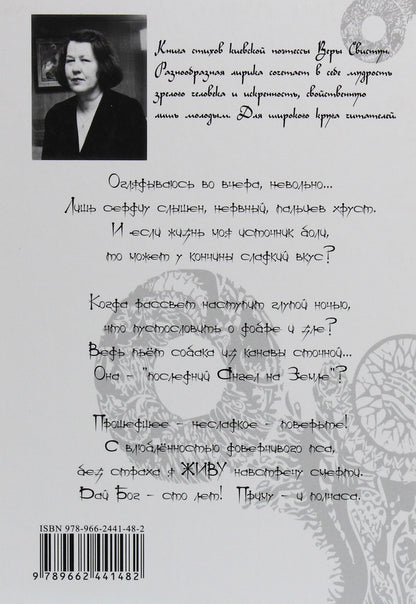 Книга стихов киевской поэтессы Веры Свистун.
Разнообразная лирика сочетает в себе мудрость
зрелого человека и искренность, свойственную
лишь молодым. Для широкого круга читателей.
Оглядываюсь во вчера, невольно...
Лишь сердцу слышен, нервный, пальцев хруст.
И если жизнь моя источник боли,
то может у кончины сладкий вкус?
Когда рассвет наступит глухой ночью,
что пустословить о добре и зле?
Ведь пьёт собака из канавы сточной...
Она - "последний Ангел на Земле"?
Прошедшее - несладкое - поверьте!
С влюблённостью доверчивого пса,
без страха я ЖИВУ навстречу смерти.
Дай Бог - сто лет! Причу - и полчаса.
ISBN 978-966-2441-48-2
9 789662 441482